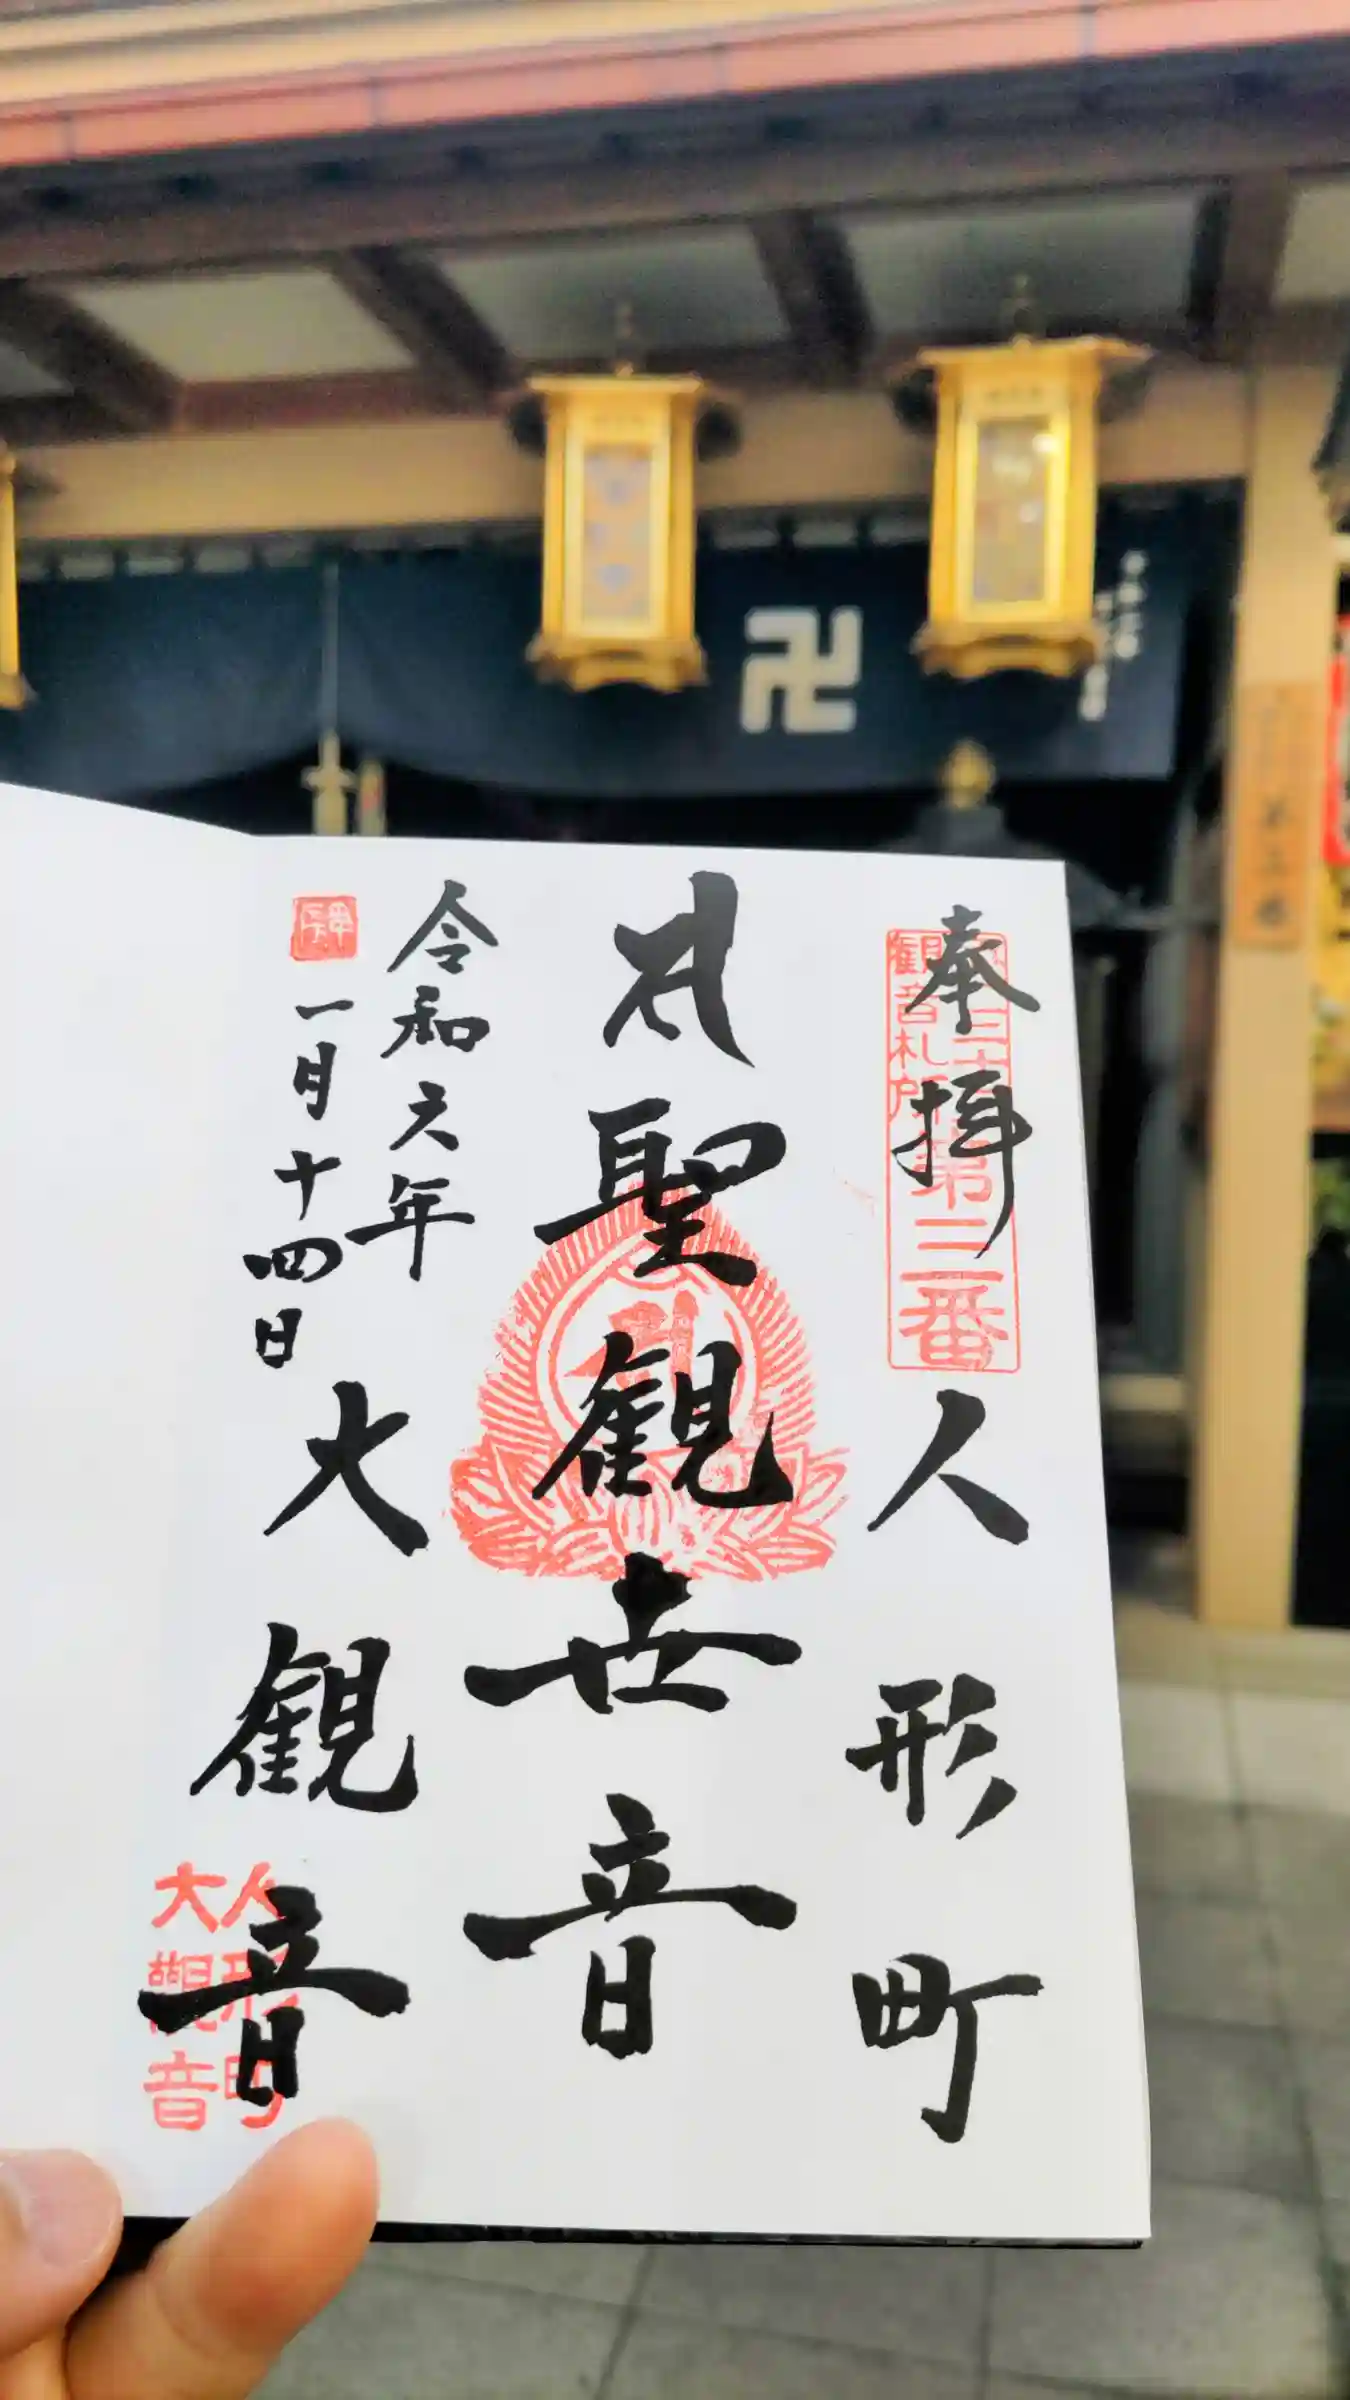 奉拝
人形町
聖観世音
令和六年
一月十四日
大観音
観音札所
第三番
人形町
大觀音